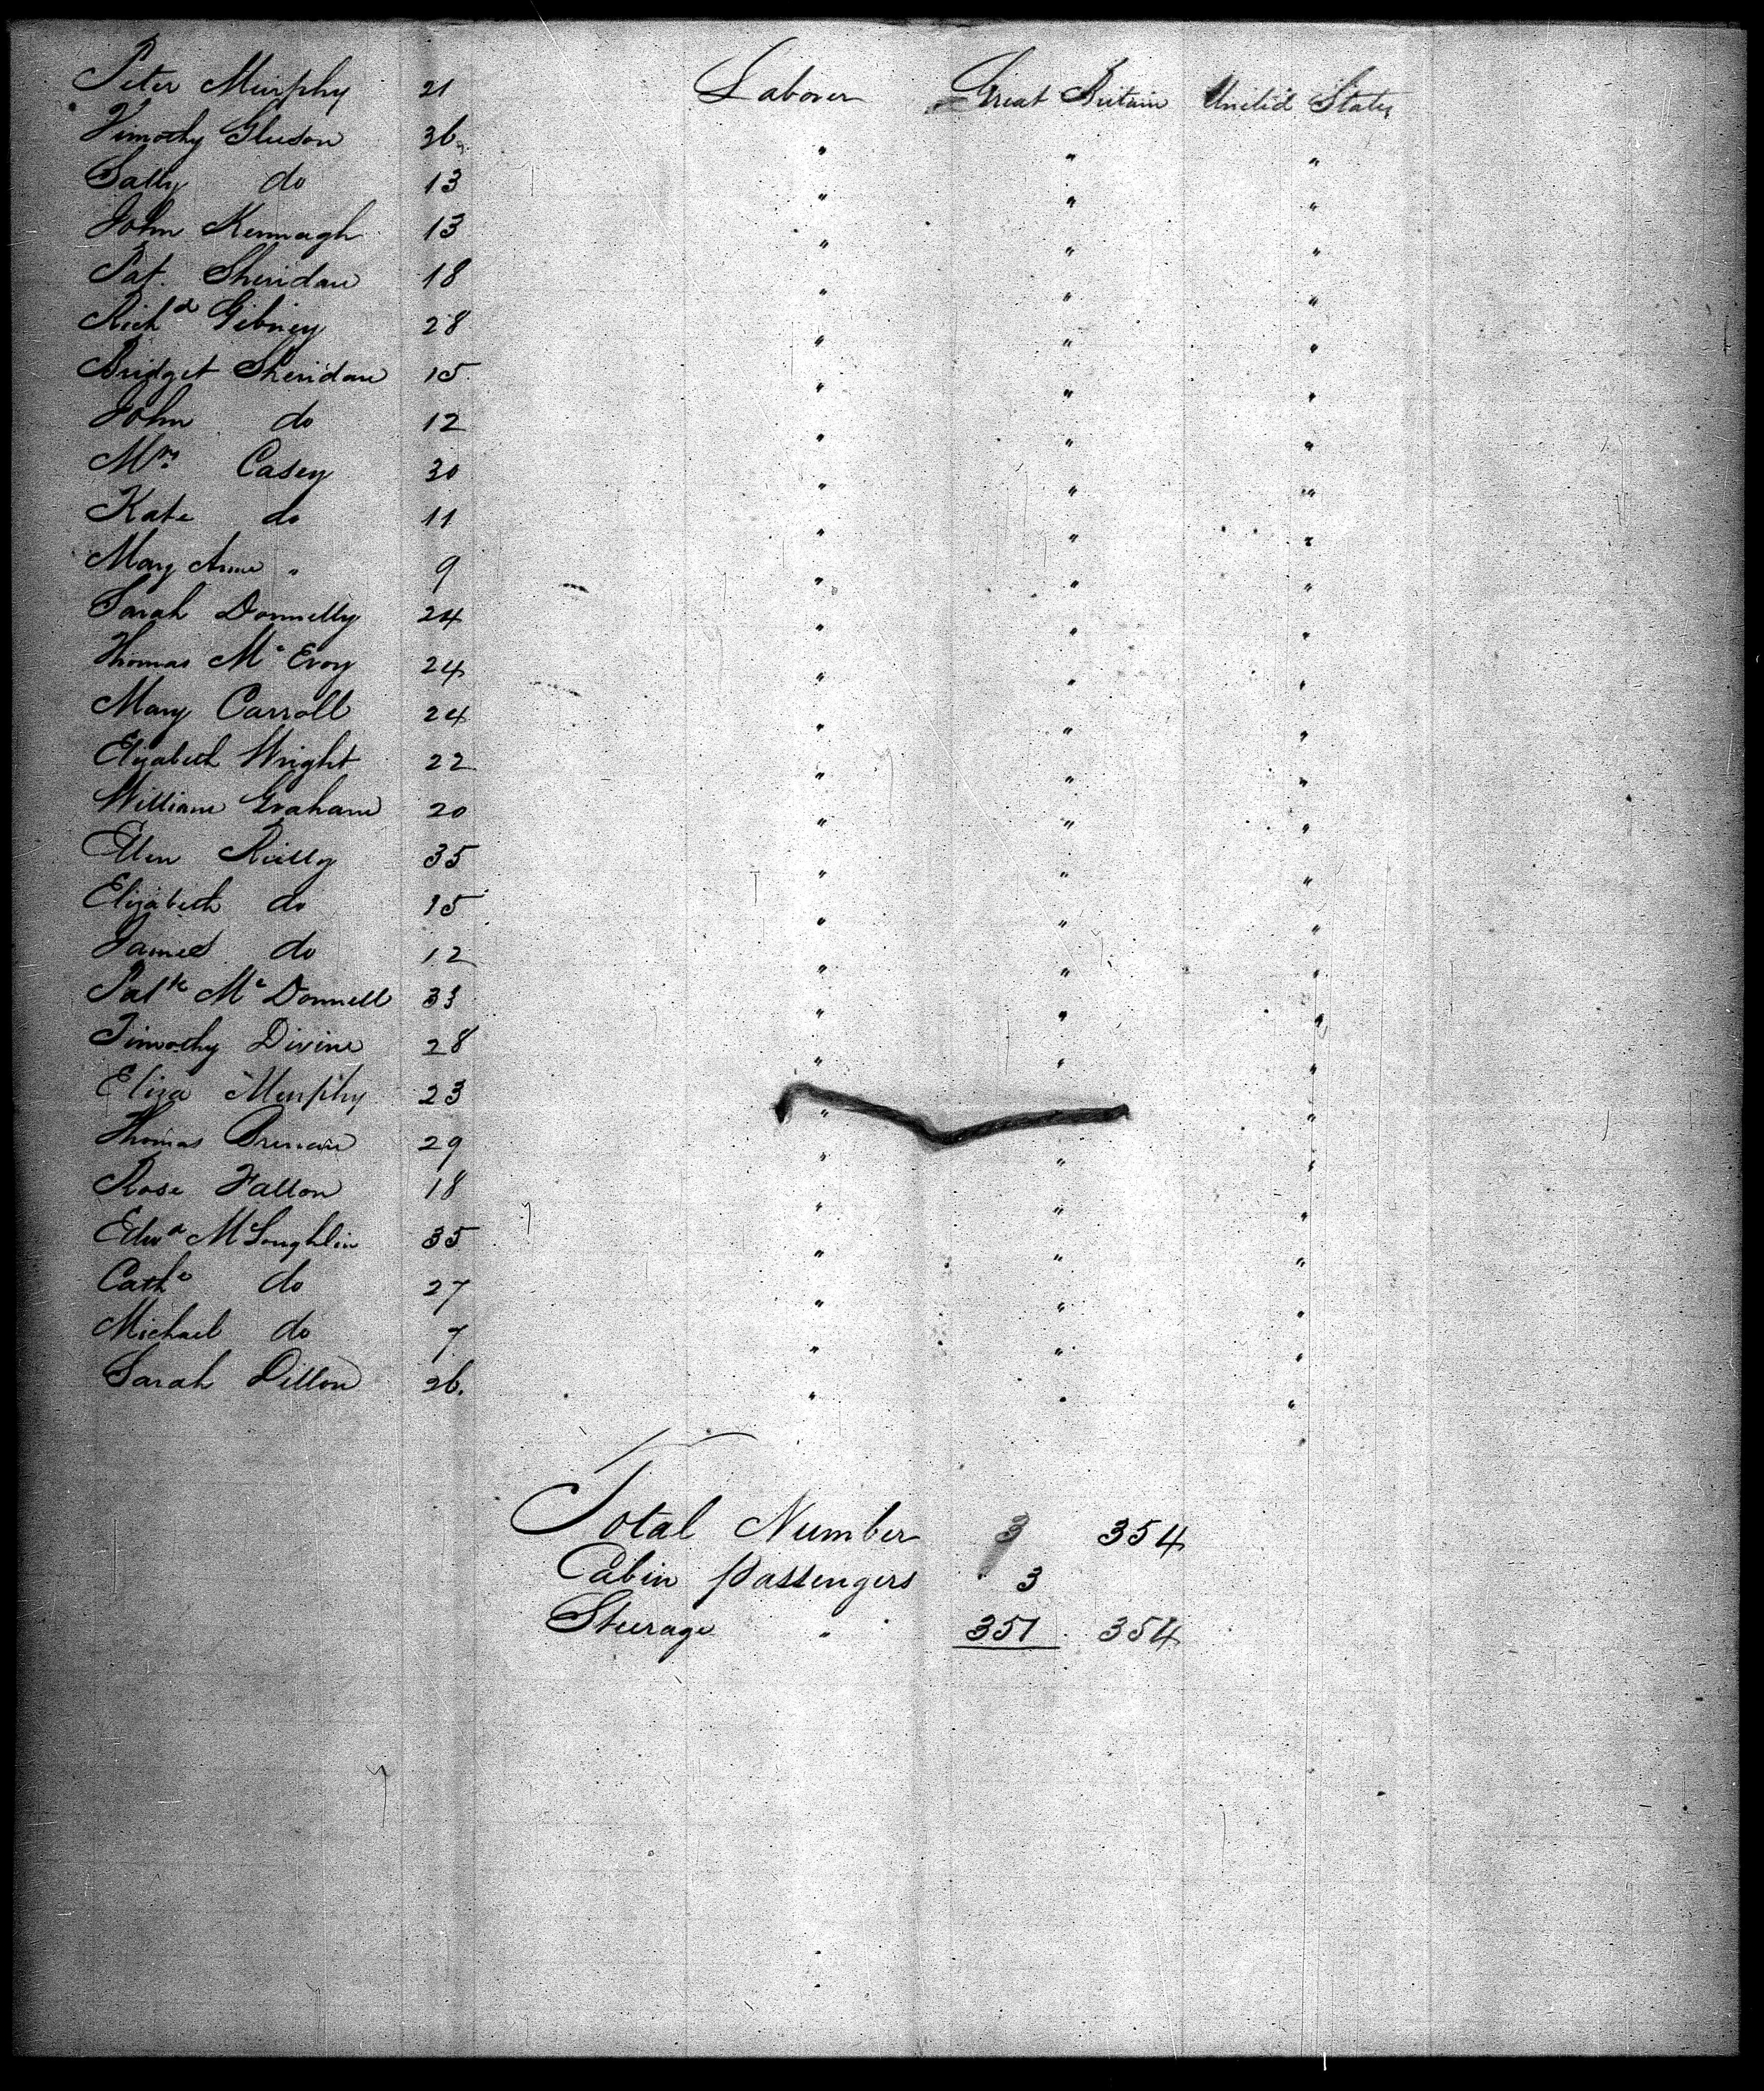 Peter Murphy 21 Laborer Great Britain United States
Timothy Gleeson 36 " " "
Sally do 13 " " "
John Kennagh 13 " " "
Pat. Sheridan 18 " " "
Richd Gibney 28 " " "
Bridget Sheridan 15 " " "
John do 12 " " "
Mrs Casey 30 " " "
Kate do 11 " " "
Mary Anne " 9 " " "
Sarah Donnelly 24 " " "
Thomas Mc Evoy 24 " " "
Mary Carroll 24 " " "
Elizabeth Wright 22 " " "
William Graham 20 " " "
Ellen Reilly 35 " " "
Elizabeth do 15 " " "
James do 12 " " "
Patk Mc Donnell 33 " " "
Timothy Divine 28 " " "
Eliza Murphy 23 " "
Thomas Brenan 29 " " "
Rose Fallon 18 " " "
Edwd McLoughlin 35 " " "
Cathe do 27 " " "
Michael do 7 " " "
Sarah Dillon 26. " " "
Total Number 354
Cabin Passengers 3
Steerage " 351 354